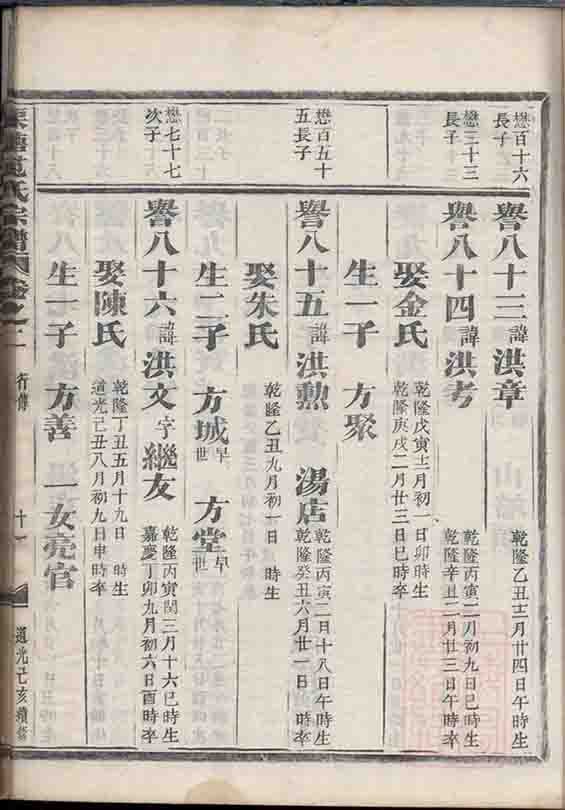 懋百十六
長子
譽八十三 諱 洪章
乾隆乙丑十二月廿四日午時生
懋三十三
長子
譽八十四 諱 洪考
乾隆丙寅二月初九日巳時生
乾隆辛丑二月廿三日午時卒
娶金氏
乾隆戊寅十二月初一日卯時生
乾隆庚戌二月廿三日巳時卒
生一子 方聚
懋百五十
五長子
譽八十五 諱 洪勲 湯店
乾隆丙寅二月十八日午時生
乾隆癸丑六月廿一日 時卒
娶朱氏
乾隆乙丑九月初一日 時生
生二子 方城 早世 方堂 早世
懋七十七
次子
譽八十六 諱 洪文 字 繼友
乾隆丙寅閏三月十六巳時生
嘉慶丁卯九月初六日酉時卒
娶陳氏
乾隆丁丑五月十九日 時生
道光己丑八月初九日申時卒
生一子 方善 一女亮官
氏宗譜
行傳
十一
道光己亥續修